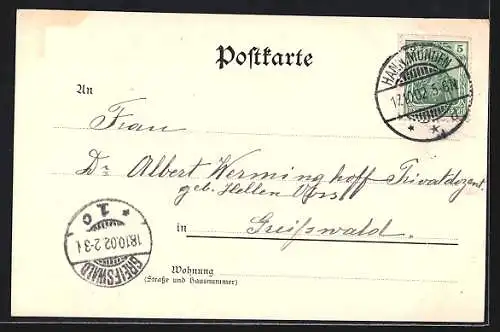 Postkarte
HANN. MÜNDEN
17.10.02. 5-6N
5
An
Frau
Dr Albert Werminghoff Privatdozent
geb. Hellen
in Greifswald.
1. c
18.10.02. 2-3
GREIFSWALD
Wohnung
(Straße und Hausnummer)